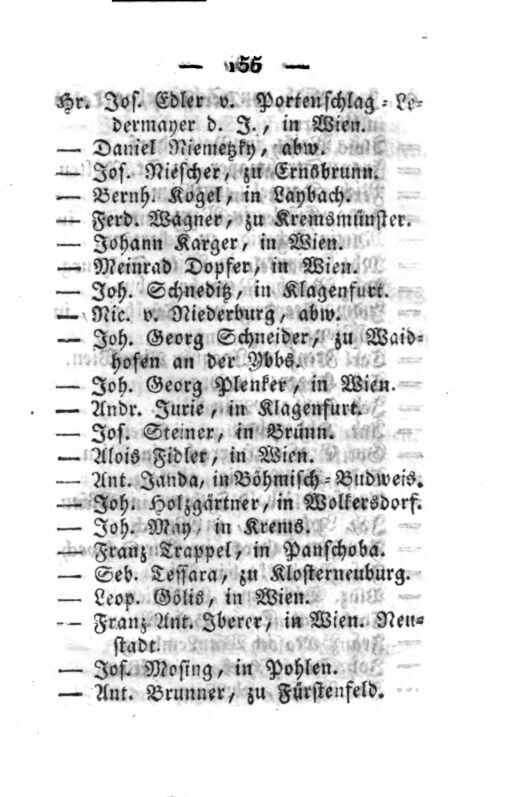 — 156 —
Hr. Jos. Edler v. Portenschlag-Le-
dermayer d. J., in Wien.
— Daniel Niemetzky, abw.
— Jos. Niescher, zu Ernsbrunn.
— Bernh. Kogel, in Laybach.
— Ferd. Wagner, zu Kremsmünster.
— Johann Karger, in Wien.
— Meinrad Dopfer, in Wien.
— Joh. Schneditz, in Klagenfurt.
— Nic. v. Niederburg, abw.
— Joh. Georg Schneider, zu Waid-
hofen an der Ybbs.
— Joh. Georg Plenker, in Wien.
— Andr. Jurie, in Klagenfurt.
— Jos. Steiner, in Brünn.
— Alois Fidler, in Wien.
— Ant. Janda, in Böhmisch-Budweis.
— Joh. Holzgärtner, in Wolkersdorf.
— Joh. May, in Krems.
— Franz Trappel, in Panschoba.
— Seb. Tessara, zu Klosterneuburg.
— Leop. Gölis, in Wien.
— Franz Ant. Iberer, in Wien. Neu-
stadt.
— Jos. Mosing, in Pohlen.
— Ant. Brunner, zu Fürstenfeld.